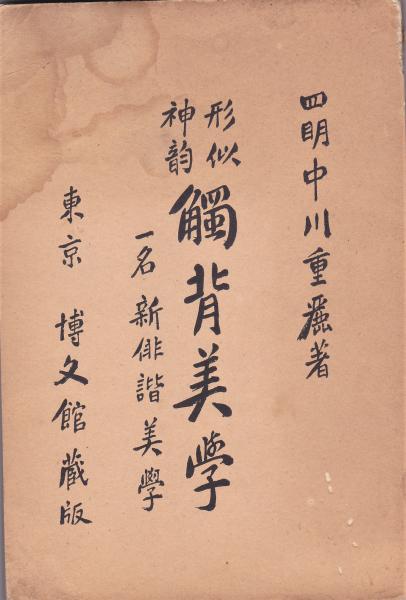 四明中川重麗著
形似
神韵
觸背美学
一名新俳諧美學
東京 博文館蔵版